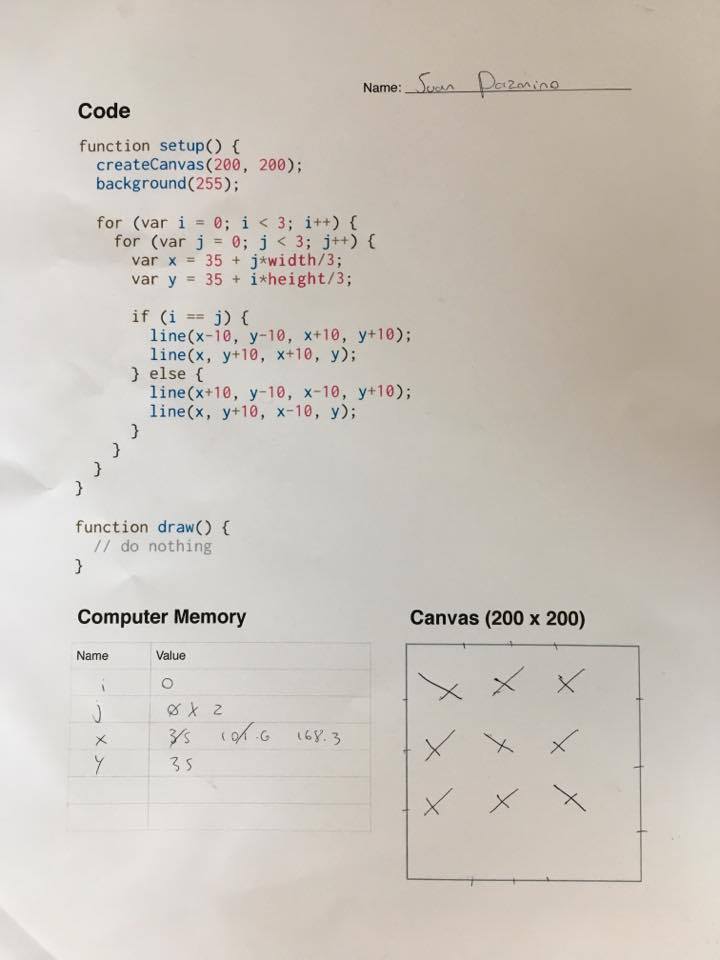 Name: Juan Pazmino
Code
function setup() {
createCanvas(200, 200);
background(255);
for (var i = 0; i < 3; i++) {
for (var j = 0; j < 3; j++) {
var x = 35 + j*width/3;
var y = 35 + i*height/3;
if (i == j) {
line(x-10, y-10, x+10, y+10);
line(x, y+10, x+10, y);
} else {
line(x+10, y-10, x-10, y+10);
line(x, y+10, x-10, y);
}
}
}
}
function draw() {
// do nothing
}
Computer Memory
Name Value
i 0
j 0 1 2
x 35 101.6 168.3
y 35
Canvas (200 x 200)